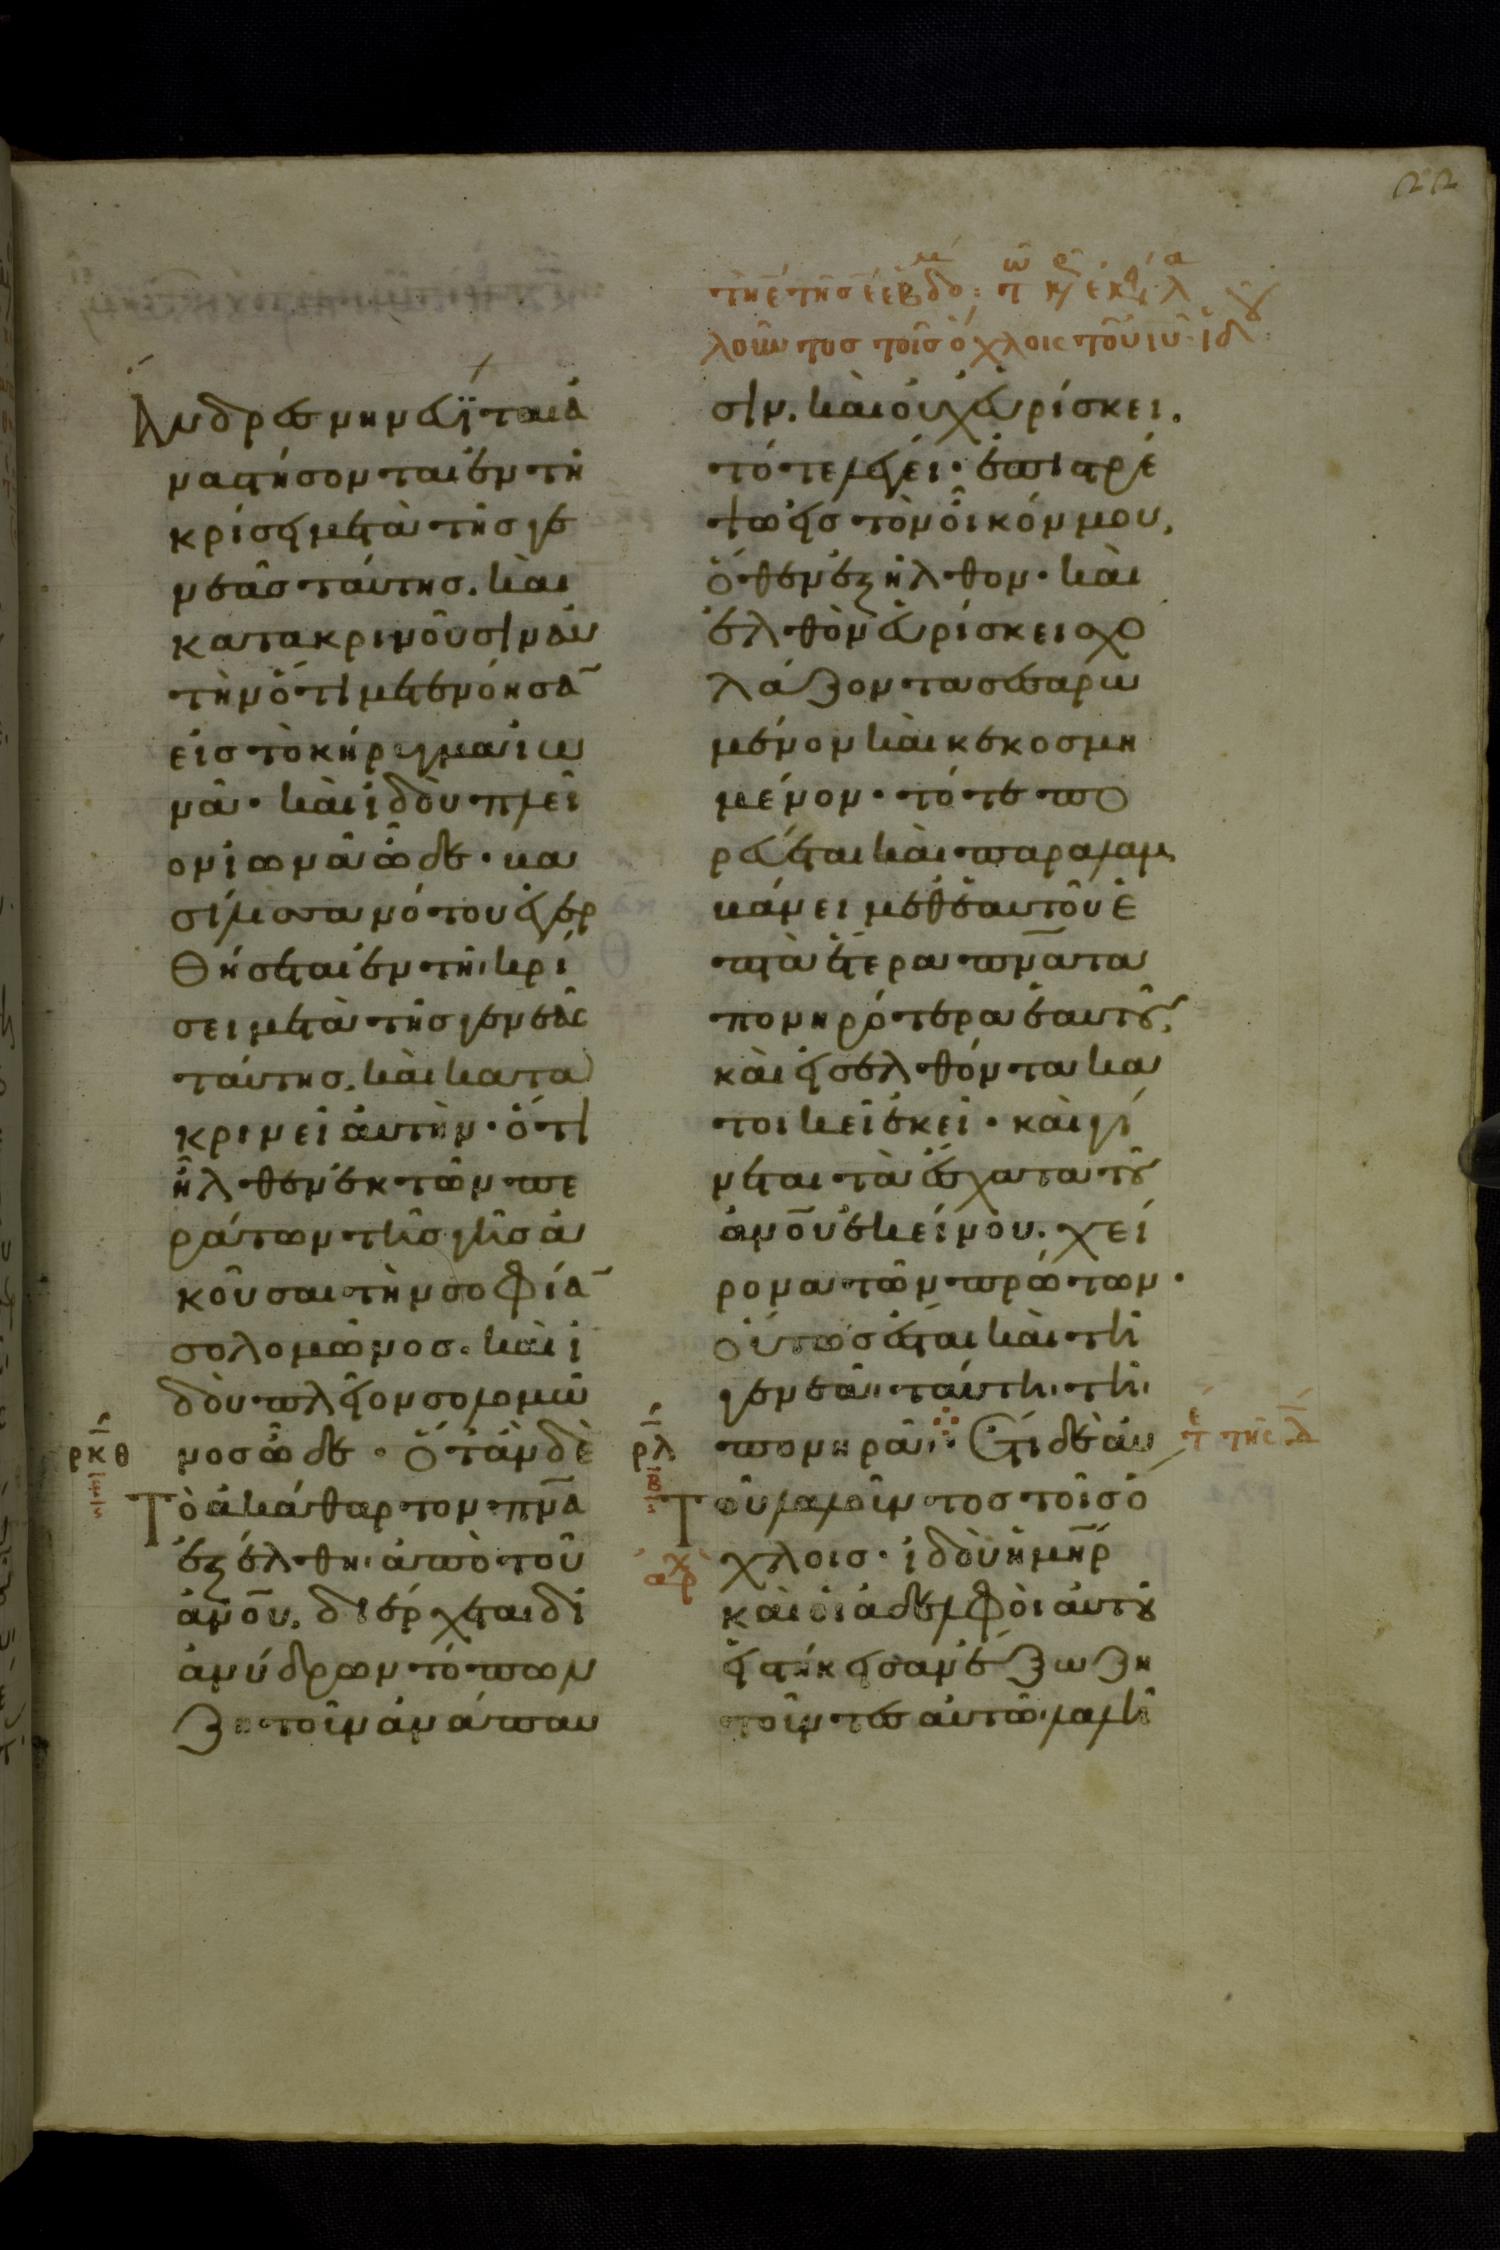 22
τῆ ε̄ τῆς ε̄ εβδο
λοῦντος τοῖς ὄχλοις τοῦ ιυ· ἰδου
Ἄνδρες νηνευΐται ἀ
ναστήσονται ἐν τῆ
κρίσει μετὰ τῆς γε
νεᾶς ταύτης. καὶ
κατακρινοῦσιν αὐ
τὴν ὅτι μετενόησᾱ
εἰς τὸ κήρυγμα ἰω
νᾶ· καὶ ἰδοὺ πλεῖ
ον ἰωνᾶ ὧδε· βα
σίλισσα νότου ἐγερ
θήσεται ἐν τῆ κρί
σει μετὰ τῆς γενεᾶς
ταύτης. καὶ κατα
κρινεῖ αὐτὴν· ὅτι
ἦλθεν ἐκ τῶν πε
ράτων τῆς γῆς ἀ
κοῦσαι τὴν σοφίᾱ
σολομῶνος. καὶ ἰ
δοὺ πλεῖον σολομῶ
ρκθ νος ὧδε· Ὅταν δὲ
Τὸ ἀκάθαρτον πνᾱ
ἐξέλθη ἀπὸ τοῦ
ἀνοῦ. διέρχεται δι
ἀνύδρων τόπων
ζητοῦν ἀνάπαυ
σιν. καὶ οὐχ εὑρίσκει.
τότε λέγει· ἐπιστρέ
ψω εἰς τὸν οἶκόν μου,
ὅθεν ἐξῆλθον· καὶ
ἐλθὸν εὑρίσκει σχο
λάζοντα σεσαρω
μένον καὶ κεκοσμη
μένον· τότε πο
ρεύεται καὶ παραλαμ
βάνει μεθ ἑαυτοῦ ἑ
πτὰ ἕτερα πνᾱτα
πονηρότερα ἑαυτοῦ,
καὶ εἰσελθόντα κα
τοικεῖ ἐκεῖ· καὶ γί
νεται τὰ ἔσχατα τοῦ
ἀνοῦ ἐκείνου. χεί
ρονα τῶν πρώτων·
οὕτως ἔσται καὶ τῆ
γενεᾶ ταύτη τῆ
ρλ πονηρᾶ· Ἔτι δὲ αὐ τ̄ε τῆς δ̄
β Τοῦ λαλοῦντος τοῖς ὄ
αρχ χλοις· ἰδοὺ ἡ μη̄ρ
καὶ οἱ ἀδελφοὶ αὐτοῦ
εἱστήκεισαν ἔξω ζη
τοῦντες αὐτῶ λαλῆ